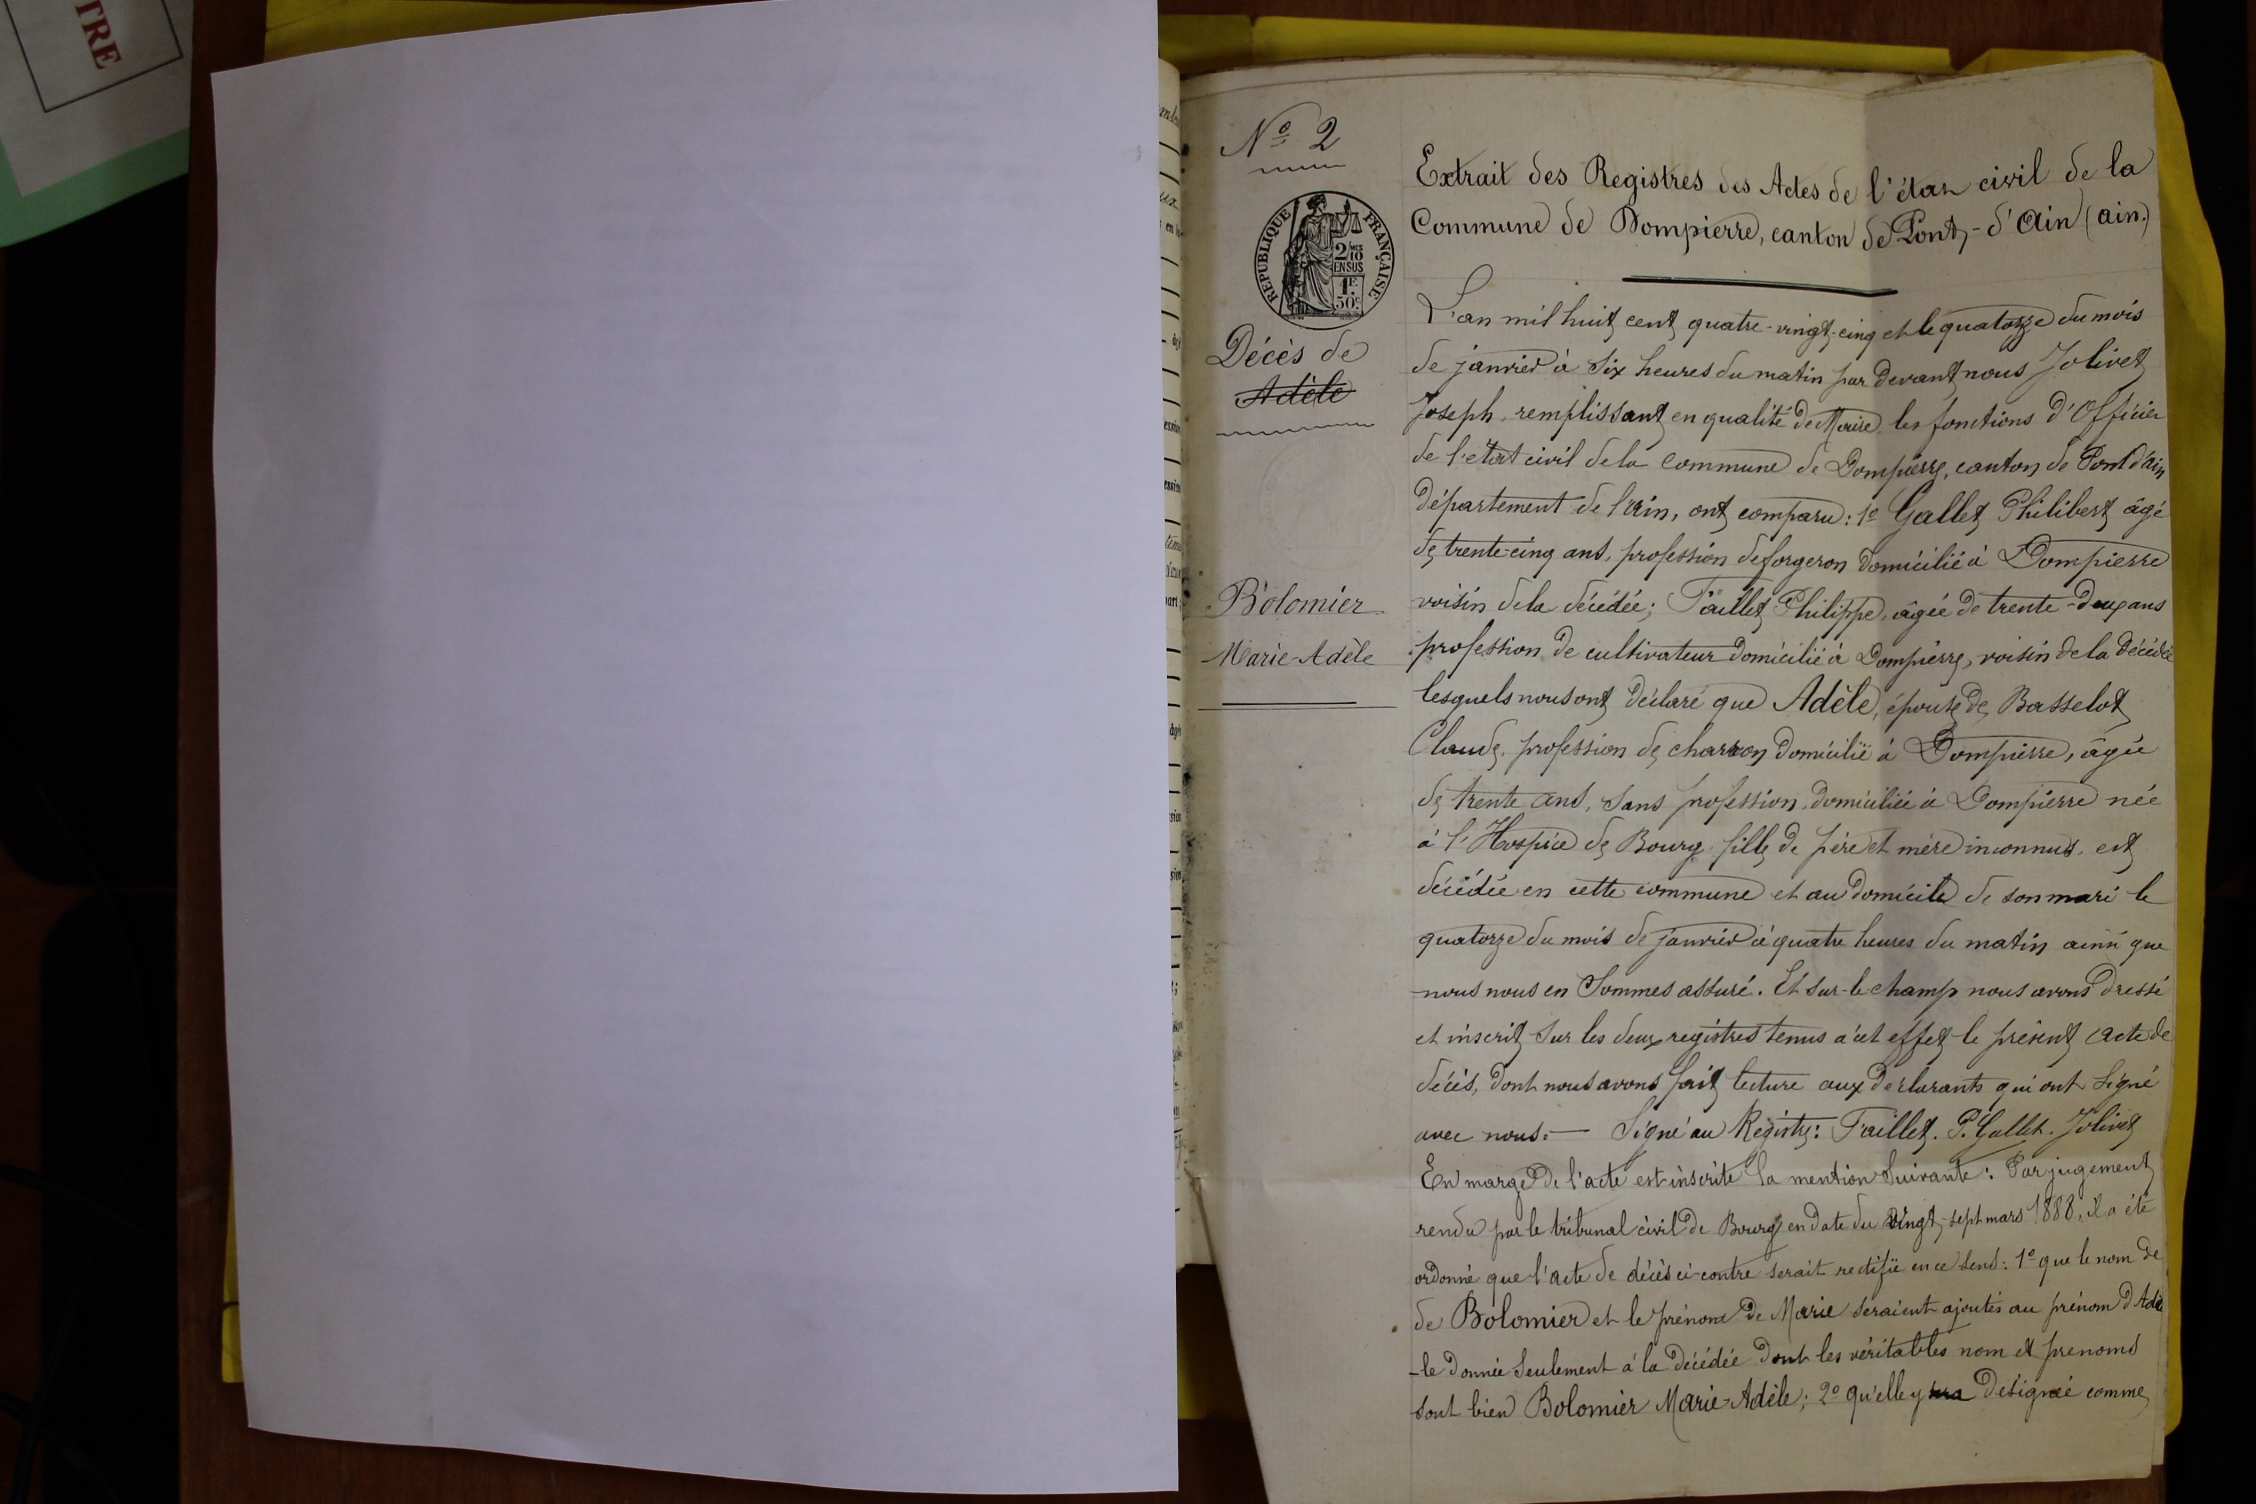 TRE
Nº 2
RÉPUBLIQUE FRANÇAISE
2/10
EN SUS
1F
50c
Décès de
Adèle
Bolomier
Marie-Adèle
Extrait des Registres des Actes de l'état civil de la
Commune de Dompierre, canton de Pont-d'Ain (ain.)
L'an mil huit cent quatre-vingt-cinq et le quatorze du mois
de janvier à Six heures du matin par devant nous Jolivet
Joseph remplissant en qualité de Maire les fonctions d'Officier
de l'état civil de la commune de Dompierre, canton de Pont d'ain
département de l'ain, ont comparu : 1º Gallet Philibert âgé
de trente-cinq ans, profession de forgeron domicilié à Dompierre
voisin de la décédée; Faillet Philippe, âgée de trente-deux ans
profession de cultivateur domicilié à Dompierre, voisin de la décédée
lesquels nous ont déclaré que Adèle, épouse de Basselot
Claude, profession de charron domicilié à Dompierre, âgée
de trente ans, sans profession, domiciliée à Dompierre née
à l'Hospice de Bourg fille de père et mère inconnus, est
décédée en cette commune et au domicile de son mari le
quatorze du mois de janvier à quatre heures du matin ainsi que
nous nous en Sommes assuré. Et sur-le-champ nous avons dressé
et inscrit sur les deux registres tenus à cet effet le présent acte de
décès, dont nous avons fait lecture aux déclarants qui ont Signé
avec nous. — Signé au Registre : Faillet. P. Gallet. Jolivet
En marge de l'acte est inscrite la mention Suivante : Par jugement
rendu par le tribunal civil de Bourg en date du vingt-sept mars 1888, il a été
ordonné que l'acte de décès ci-contre serait rectifié en ce sens : 1º que le nom de
de Bolomier et le prénom de Marie seraient ajoutés au prénom d'Adè
-le donnée seulement à la décédée dont les véritables nom et prénoms
sont bien Bolomier Marie-Adèle; 2º qu'elle y sera désignée comme